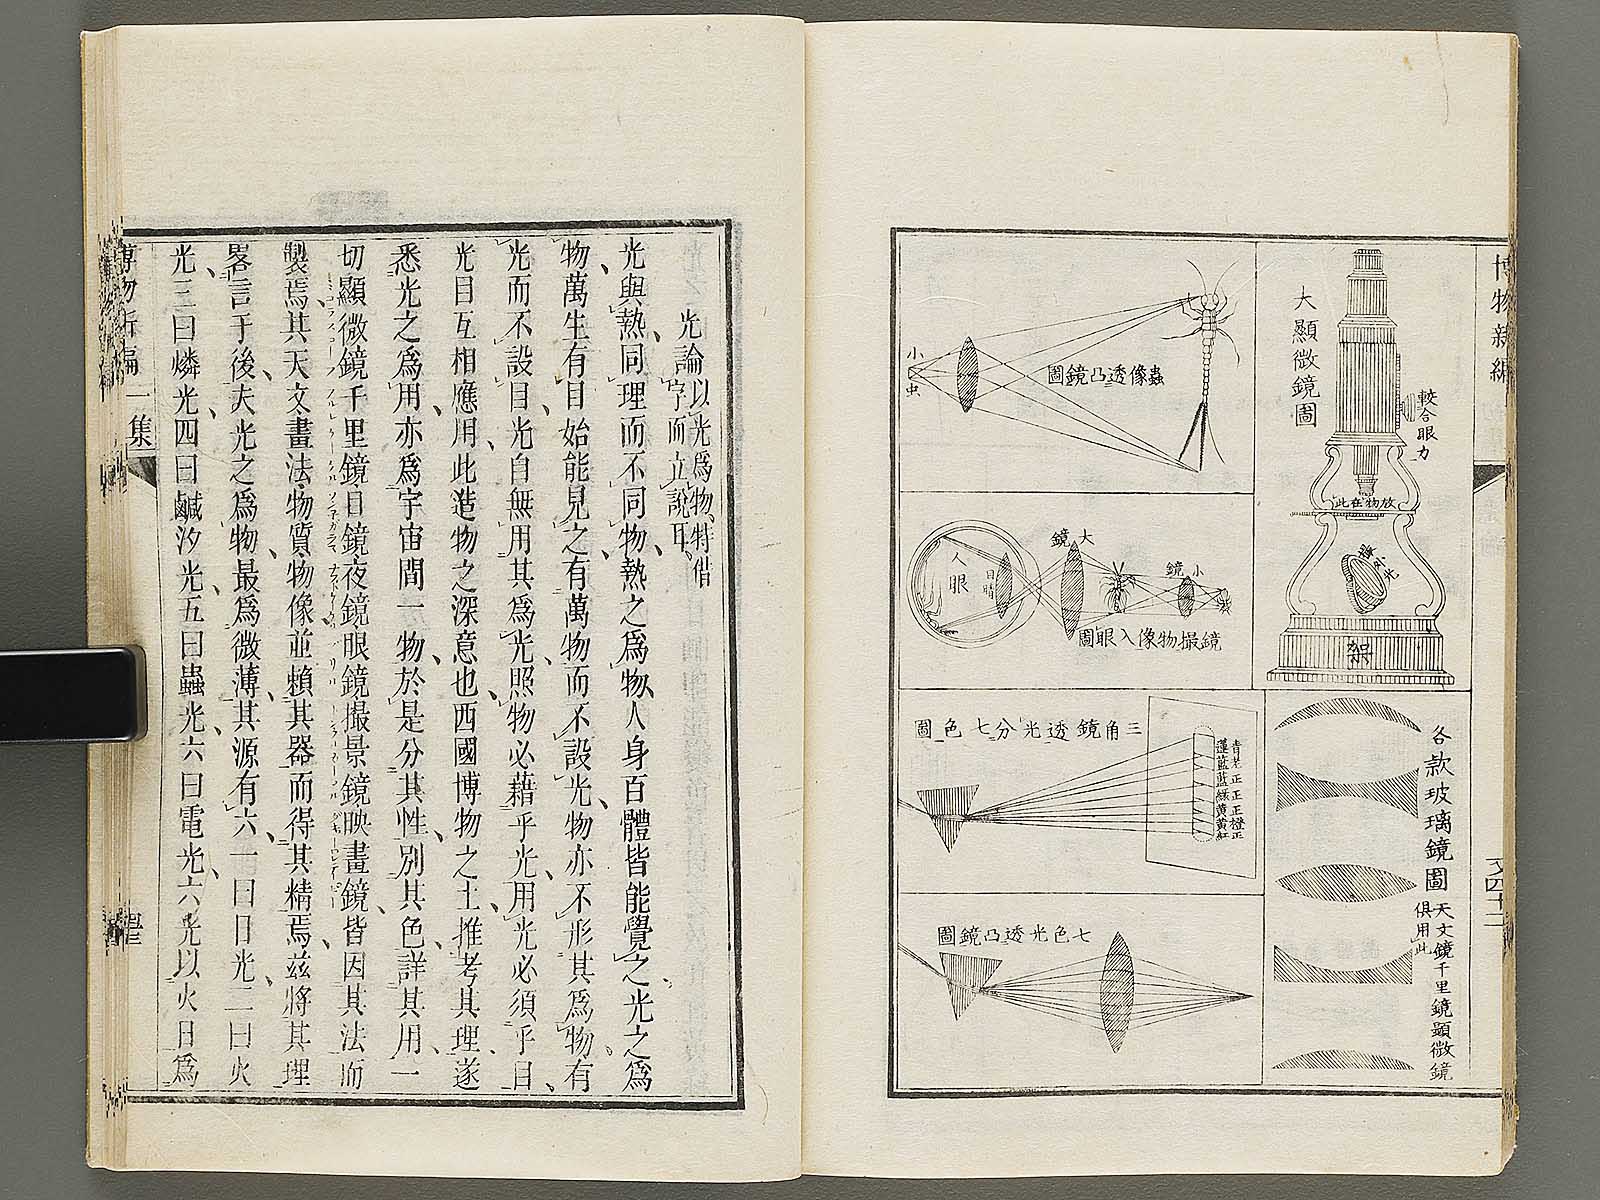 博物新編
大顯微鏡圖
較合眼力
放物在此
架
各款玻璃鏡圖
天文鏡千里鏡顯微鏡
俱用此
蟲像透凸鏡圖
小虫
人眼
目睛
大鏡
小鏡
鏡撮物像入眼圖
三角鏡透光分七色圖
七色光透凸鏡圖
光論以光爲物特借
字而立說耳
光與熱同理而不同物熱之爲物人身百體皆能覺之光之爲
物萬生有目始能見之有萬物而不設光物亦不形其爲物有
光而不設目光自無用其爲光照物必藉乎光用光必須乎目
光目互相應用此造物之深意也西國博物之士推考其理遂
悉光之爲用亦爲宇宙間一物於是分其性別其色詳其用一
切顯微鏡千里鏡日鏡夜鏡眼鏡撮景鏡映畫鏡皆因其法而
製焉其天文畫法物質物像並賴其器而得其精焉茲將其理
畧言于後夫光之爲物最爲微薄其源有六一曰日光二曰火
光三曰燐光四曰鹹汐光五曰蟲光六曰電光六光以火日爲
博物新編
一集